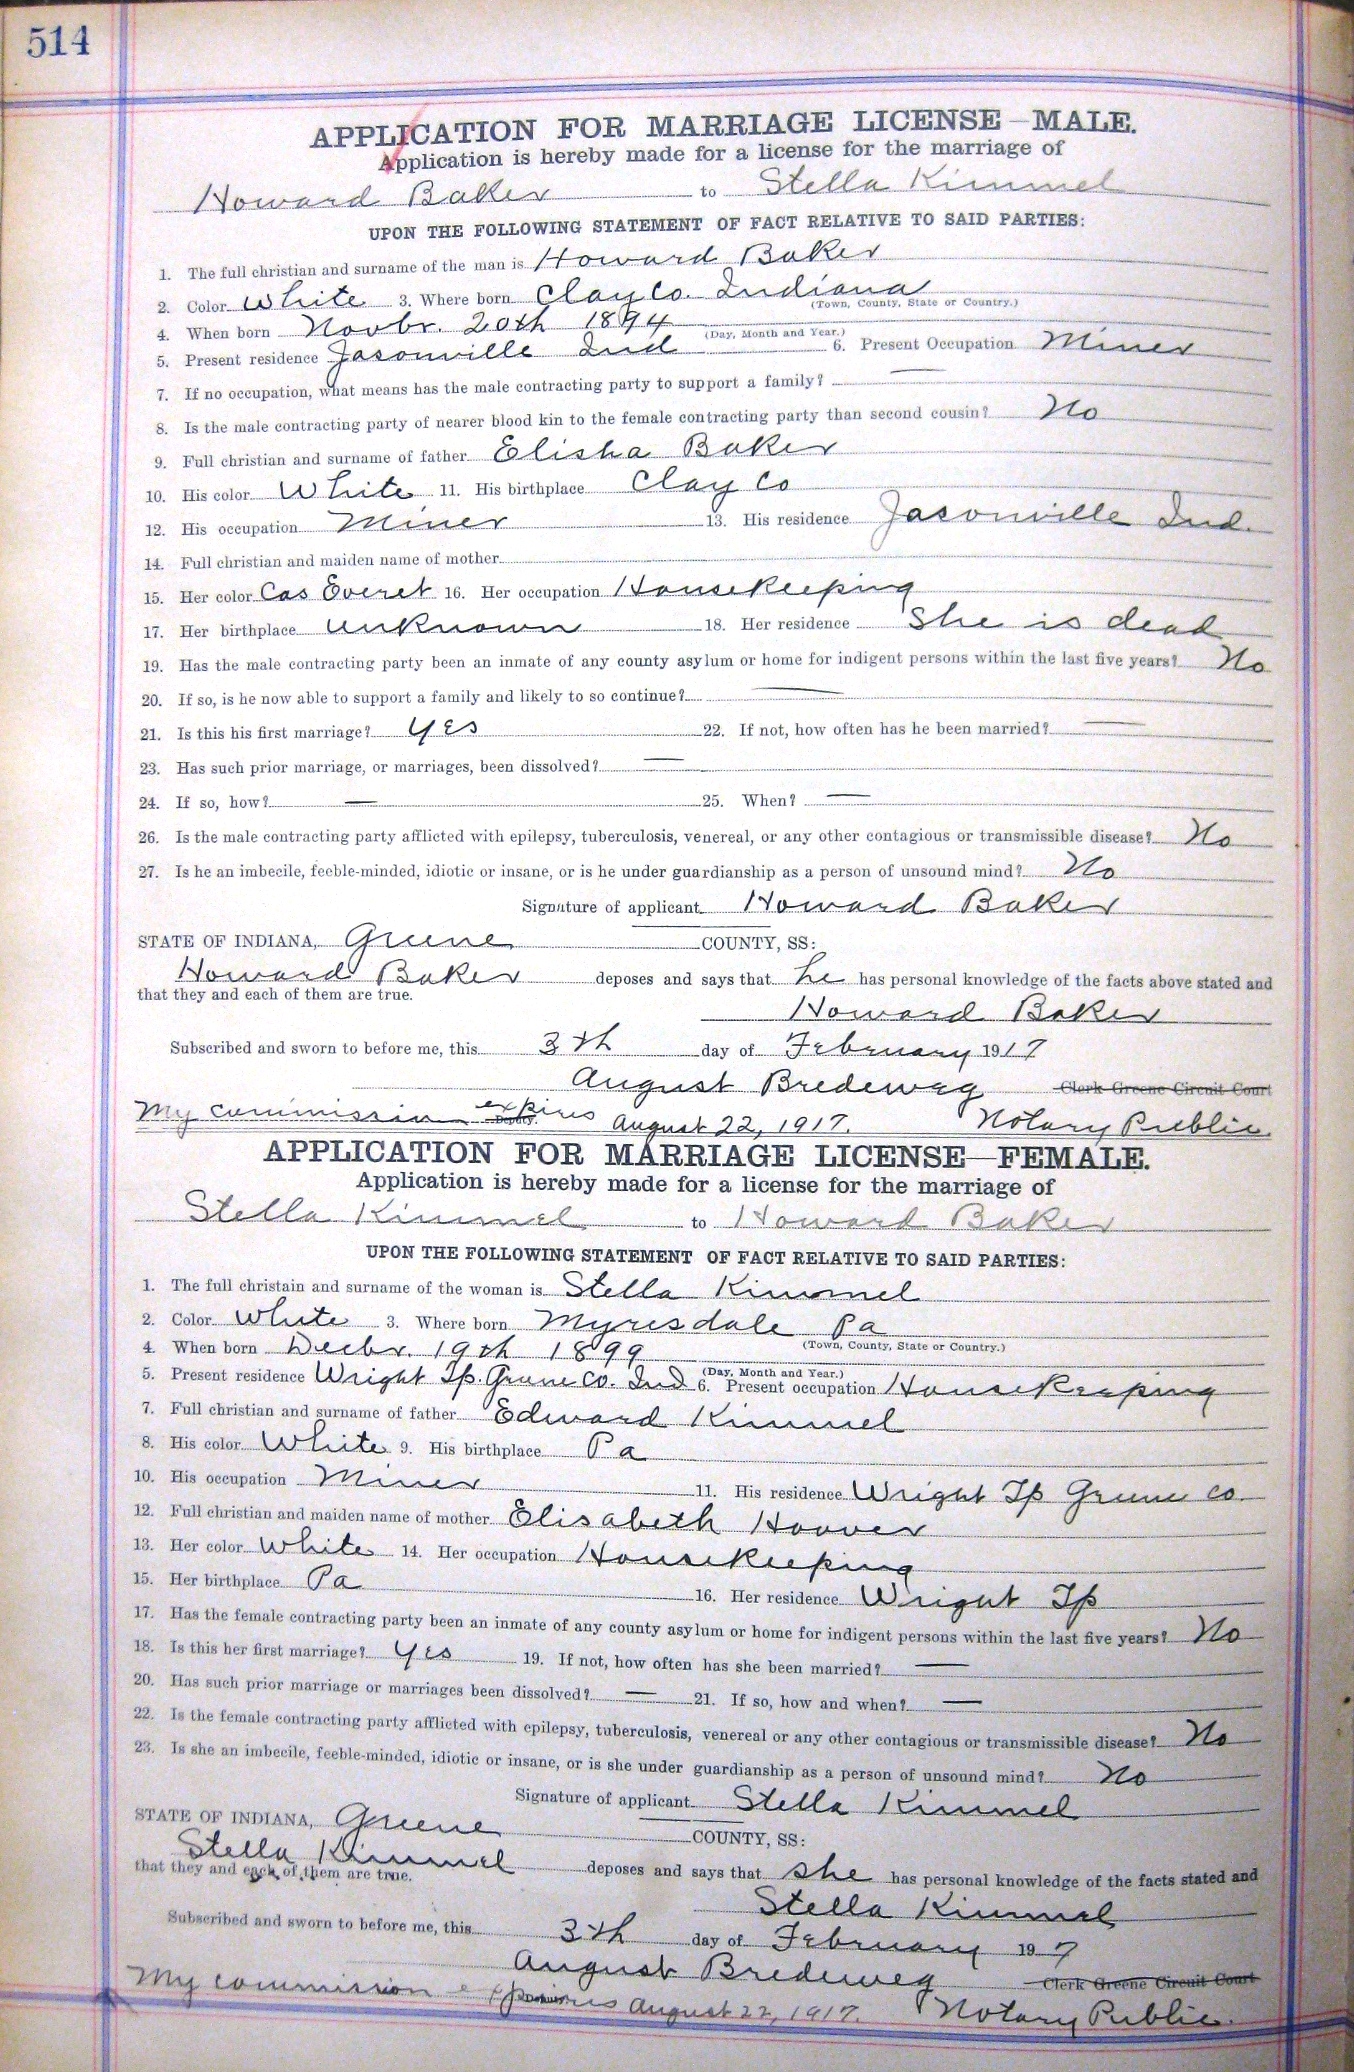 514
APPLICATION FOR MARRIAGE LICENSE—MALE.
Application is hereby made for a license for the marriage of
Howard Baker to Stella Kimmel
UPON THE FOLLOWING STATEMENT OF FACT RELATIVE TO SAID PARTIES:
1. The full christian and surname of the man is Howard Baker
2. Color White 3. Where born Clay Co. Indiana
(Town, County, State or Country.)
4. When born Novbr. 20th 1894
(Day, Month and Year.)
5. Present residence Jasonville Ind 6. Present Occupation Miner
7. If no occupation, what means has the male contracting party to support a family? —
8. Is the male contracting party of nearer blood kin to the female contracting party than second cousin? No
9. Full christian and surname of father Elisha Baker
10. His color White 11. His birthplace Clay Co
12. His occupation Miner 13. His residence Jasonville Ind.
14. Full christian and maiden name of mother
15. Her color Cas Everet 16. Her occupation Housekeeping
17. Her birthplace unknown 18. Her residence She is dead
19. Has the male contracting party been an inmate of any county asylum or home for indigent persons within the last five years? No
20. If so, is he now able to support a family and likely to so continue? —
21. Is this his first marriage? Yes 22. If not, how often has he been married? —
23. Has such prior marriage, or marriages, been dissolved? —
24. If so, how? — 25. When? —
26. Is the male contracting party afflicted with epilepsy, tuberculosis, venereal, or any other contagious or transmissible disease? No
27. Is he an imbecile, feeble-minded, idiotic or insane, or is he under guardianship as a person of unsound mind? No
Signature of applicant Howard Baker
STATE OF INDIANA, Greene COUNTY, SS:
Howard Baker deposes and says that he has personal knowledge of the facts above stated and
that they and each of them are true.
Howard Baker
Subscribed and sworn to before me, this 3th day of February 1917
August Bredeweg Clerk Greene Circuit Court
My commission expires Deputy. August 22, 1917. Notary Public.
APPLICATION FOR MARRIAGE LICENSE—FEMALE.
Application is hereby made for a license for the marriage of
Stella Kimmel to Howard Baker
UPON THE FOLLOWING STATEMENT OF FACT RELATIVE TO SAID PARTIES:
1. The full christain and surname of the woman is Stella Kimmel
2. Color White 3. Where born Myresdale Pa
(Town, County, State or Country.)
4. When born Decbr. 19th 1899
(Day, Month and Year.)
5. Present residence Wright Tp. Greene Co. Ind 6. Present occupation Housekeeping
7. Full christian and surname of father Edward Kimmel
8. His color White 9. His birthplace Pa
10. His occupation Miner 11. His residence Wright Tp Greene Co.
12. Full christian and maiden name of mother Elisabeth Hoover
13. Her color White 14. Her occupation Housekeeping
15. Her birthplace Pa 16. Her residence Wright Tp
17. Has the female contracting party been an inmate of any county asylum or home for indigent persons within the last five years? No
18. Is this her first marriage? Yes 19. If not, how often has she been married? —
20. Has such prior marriage or marriages been dissolved? — 21. If so, how and when? —
22. Is the female contracting party afflicted with epilepsy, tuberculosis, venereal or any other contagious or transmissible disease? No
23. Is she an imbecile, feeble-minded, idiotic or insane, or is she under guardianship as a person of unsound mind? No
Signature of applicant Stella Kimmel
STATE OF INDIANA, Greene COUNTY, SS:
Stella Kimmel deposes and says that she has personal knowledge of the facts stated and
that they and each of them are true.
Stella Kimmel
Subscribed and sworn to before me, this 3th day of February 19 7
August Bredeweg Clerk Greene Circuit Court
My commission expires August 22, 1917. Notary Public.